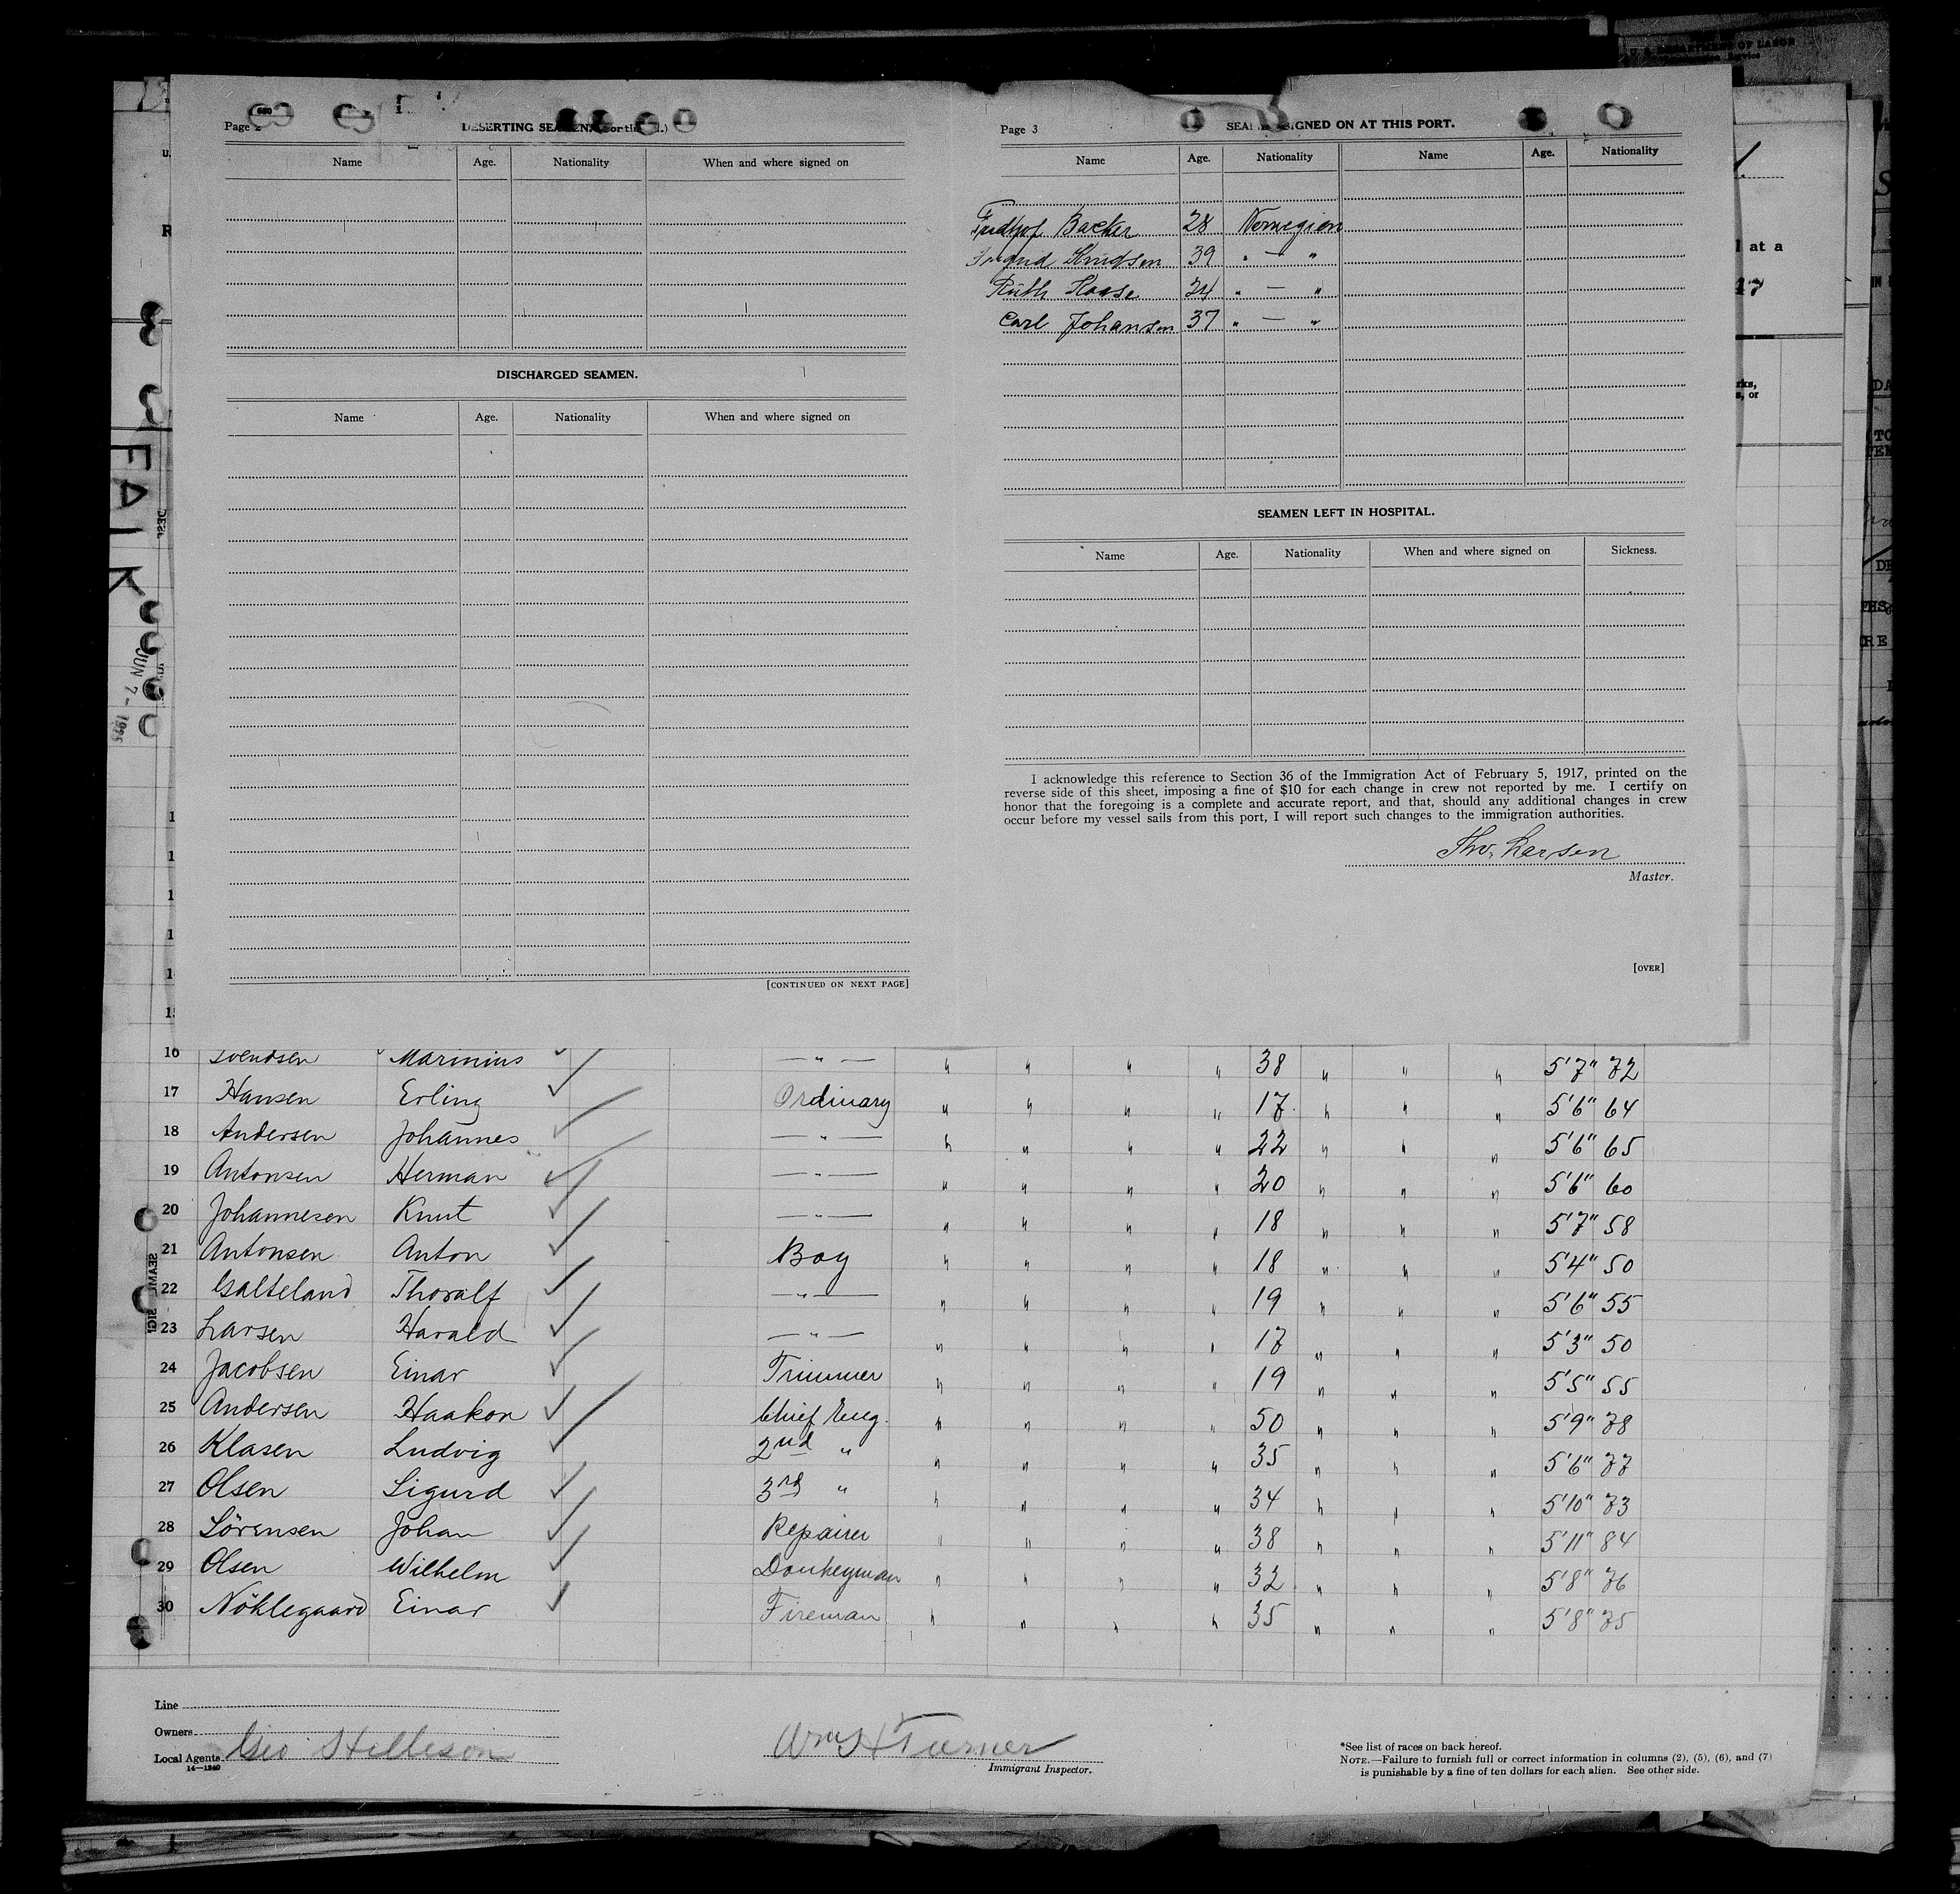 U. S. DEPARTMENT OF LABOR
Page 2
DESERTING SEAMEN.
Name Age. Nationality When and where signed on
DISCHARGED SEAMEN.
Name Age. Nationality When and where signed on
[CONTINUED ON NEXT PAGE]
Page 3
SEAMEN SIGNED ON AT THIS PORT.
Name Age. Nationality Name Age. Nationality
Backer 28 Norwegian
Knudsen 39 " — "
Ruth Haase 24 " — "
Carl Johansen 37 " — "
SEAMEN LEFT IN HOSPITAL.
Name Age. Nationality When and where signed on Sickness.
I acknowledge this reference to Section 36 of the Immigration Act of February 5, 1917, printed on the
reverse side of this sheet, imposing a fine of $10 for each change in crew not reported by me. I certify on
honor that the foregoing is a complete and accurate report, and that, should any additional changes in crew
occur before my vessel sails from this port, I will report such changes to the immigration authorities.
Tho. Larsen
Master.
[OVER]
FALK
JUN 7 - 1925
at a
16 Svendsen Marinius — " — " " " " 38 " " " 5'7" 72
17 Hansen Erling Ordinary " " " " 17 " " " 5'6" 64
18 Andersen Johannes — " — " " " " 22 " " " 5'6" 65
19 Antonsen Herman — " — " " " " 20 " " " 5'6" 60
20 Johannesen Knut — " — " " " " 18 " " " 5'7" 58
21 Antonsen Anton Boy " " " " 18 " " " 5'4" 50
22 Galteland Thoralf — " — " " " " 19 " " " 5'6" 55
23 Larsen Harald — " — " " " " 17 " " " 5'3" 50
24 Jacobsen Einar Trimmer " " " " 19 " " " 5'5" 55
25 Andersen Haakon Chief Eng. " " " " 50 " " " 5'9" 78
26 Klasen Ludvig 2nd " " " " " 35 " " " 5'6" 77
27 Olsen Sigurd 3rd " " " " " 34 " " " 5'10" 73
28 Sörensen Johan Repairer " " " " 38 " " " 5'11" 84
29 Olsen Wilhelm Donkeyman " " " " 32 " " " 5'8" 76
30 Nöklegaard Einar Fireman " " " " 35 " " " 5'8" 75
Line
Owners
Local Agents Geo Stelleson
14—1240
Wm H Turner
Immigrant Inspector.
*See list of races on back hereof.
NOTE.—Failure to furnish full or correct information in columns (2), (5), (6), and (7)
is punishable by a fine of ten dollars for each alien. See other side.